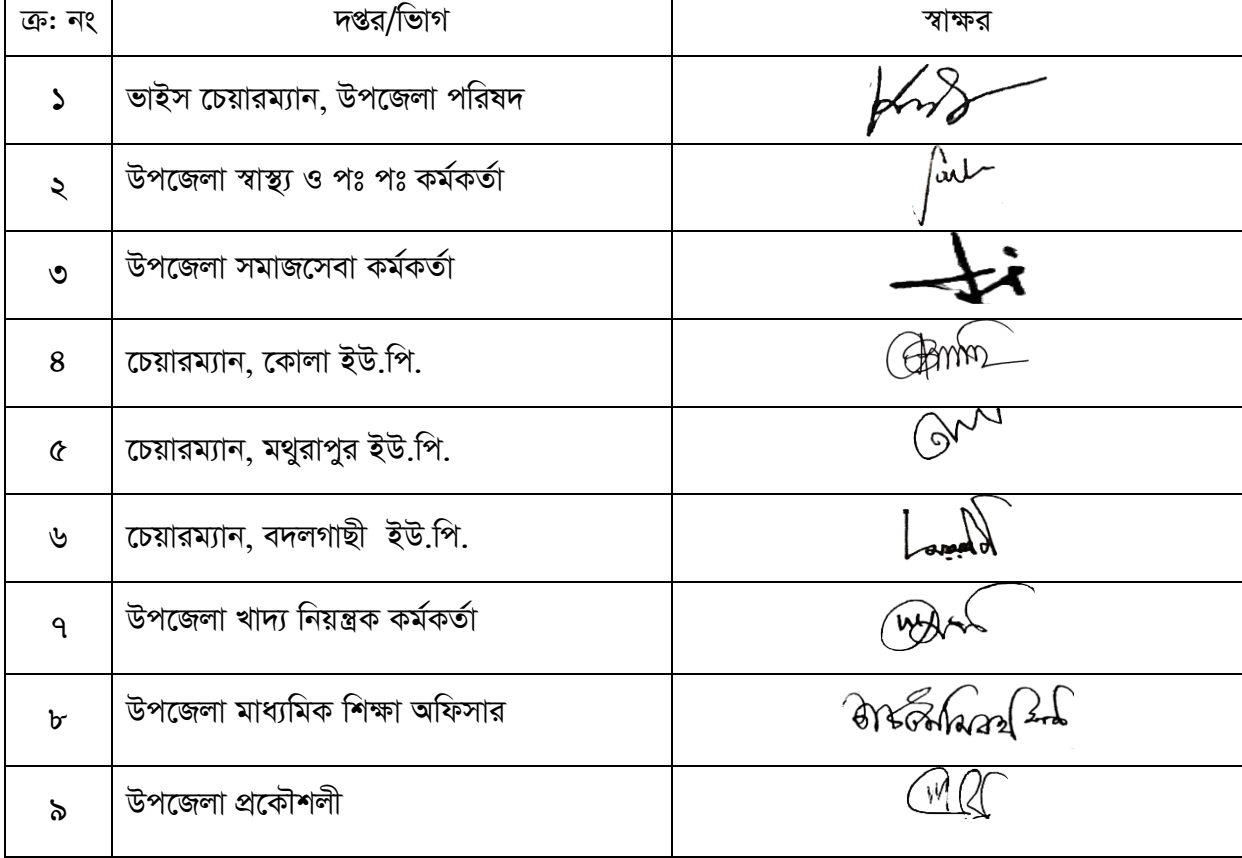 ক্র: নং দপ্তর/ভিাগ স্বাক্ষর
১ ভাইস চেয়ারম্যান, উপজেলা পরিষদ
২ উপজেলা স্বাস্থ্য ও পঃ পঃ কর্মকর্তা
৩ উপজেলা সমাজসেবা কর্মকর্তা
৪ চেয়ারম্যান, কোলা ইউ.পি.
৫ চেয়ারম্যান, মথুরাপুর ইউ.পি.
৬ চেয়ারম্যান, বদলগাছী ইউ.পি.
৭ উপজেলা খাদ্য নিয়ন্ত্রক কর্মকর্তা
৮ উপজেলা মাধ্যমিক শিক্ষা অফিসার
৯ উপজেলা প্রকৌশলী